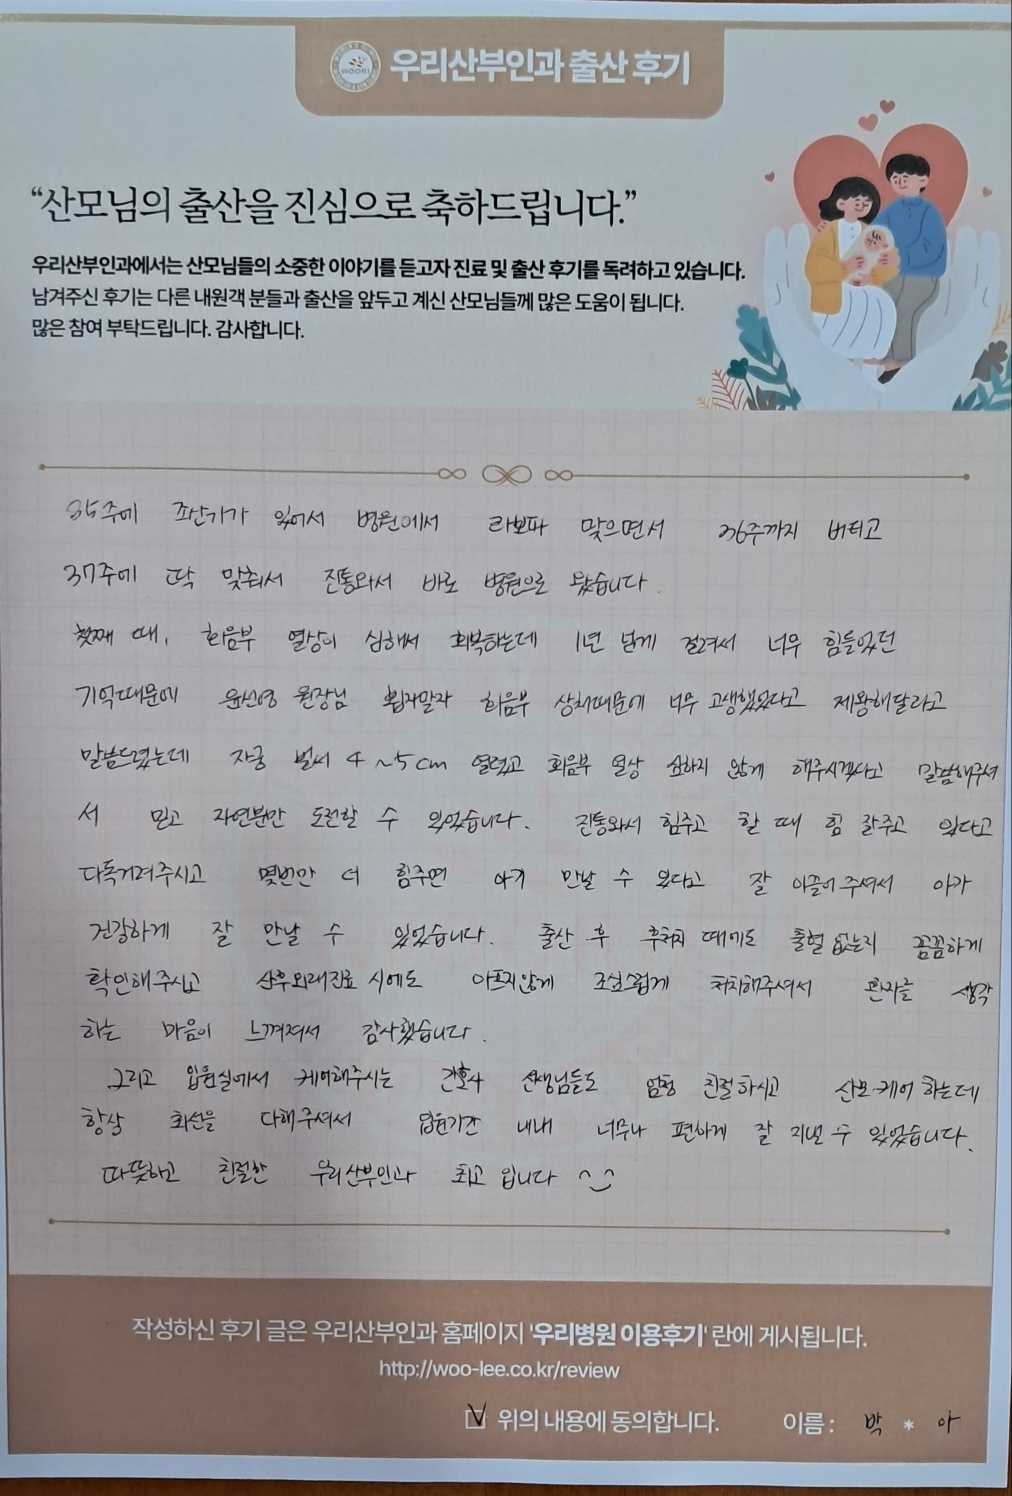 WOORI
우리산부인과 출산 후기
“산모님의 출산을 진심으로 축하드립니다.”
우리산부인과에서는 산모님들의 소중한 이야기를 듣고자 진료 및 출산 후기를 독려하고 있습니다.
남겨주신 후기는 다른 내원객 분들과 출산을 앞두고 계신 산모님들께 많은 도움이 됩니다.
많은 참여 부탁드립니다. 감사합니다.
35주에 조산기가 있어서 병원에서 라보파 맞으면서 36주까지 버티고
37주에 딱 맞춰서 진통와서 바로 병원으로 왔습니다.
첫째 때, 회음부 열상이 심해서 회복하는데 1년 넘게 걸려서 너무 힘들었던
기억때문에 윤선영 원장님 뵙자말자 회음부 상처때문에 너무 고생했었다고 제왕해달라고
말씀드렸는데 자궁 벌써 4~5cm 열렸고 회음부 열상 심하지 않게 해주시겠다고 말씀해주셔
서 믿고 자연분만 도전할 수 있었습니다. 진통와서 힘주고 할 때 힘 잘주고 있다고
다독거려주시고 몇번만 더 힘주면 아기 만날 수 있다고 잘 이끌어주셔서 아가
건강하게 잘 만날 수 있었습니다. 출산 후 후처치 때에도 출혈 없는지 꼼꼼하게
확인해주시고 산후외래진료 시에도 아프지않게 조심스럽게 처치해주셔서 환자를 생각
하는 마음이 느껴져서 감사했습니다.
그리고 입원실에서 케어해주시는 간호사 선생님들도 엄청 친절하시고 산모케어 하는데
항상 최선을 다해주셔서 입원기간 내내 너무나 편하게 잘 지낼 수 있었습니다.
따뜻하고 친절한 우리산부인과 최고 입니다 ^_^
작성하신 후기 글은 우리산부인과 홈페이지 '우리병원 이용후기' 란에 게시됩니다.
http://woo-lee.co.kr/review
위의 내용에 동의합니다. 이름 : 박 * 아